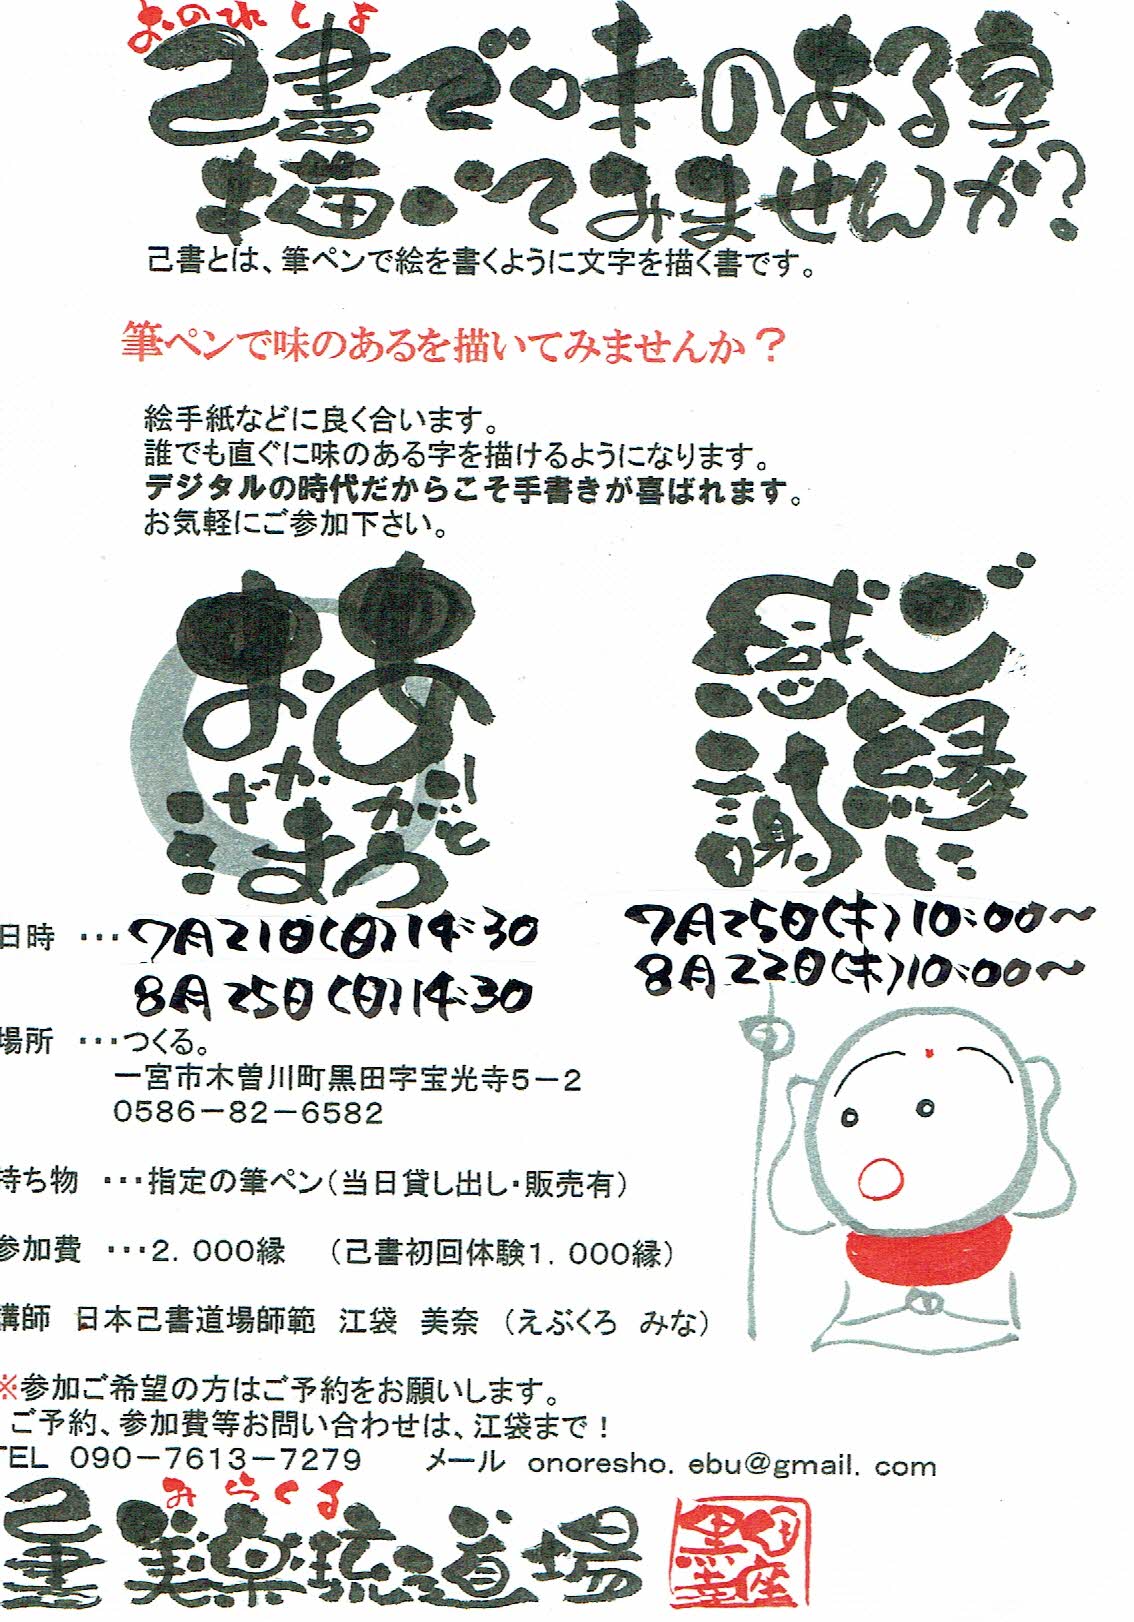 おのれしょ
己書で味のある字
描いてみませんか?
己書とは、筆ペンで絵を書くように文字を描く書です。
筆ペンで味のあるを描いてみませんか?
絵手紙などに良く合います。
誰でも直ぐに味のある字を描けるようになります。
デジタルの時代だからこそ手書きが喜ばれます。
お気軽にご参加下さい。
ご縁に
感謝
日時 ・・・7月21日(日)14:30
8月25日(日)14:30
7月25日(木)10:00~
8月22日(木)10:00~
場所 ・・・つくる。
一宮市木曽川町黒田字宝光寺5-2
0586-82-6582
持ち物 ・・・指定の筆ペン(当日貸し出し・販売有)
参加費 ・・・2.000縁 (己書初回体験1.000縁)
講師 日本己書道場師範 江袋 美奈 (えぶくろ みな)
※参加ご希望の方はご予約をお願いします。
ご予約、参加費等お問い合わせは、江袋まで!
TEL 090-7613-7279 メール onoresho.ebu@gmail.com
みらくる
己書 美楽琉道場